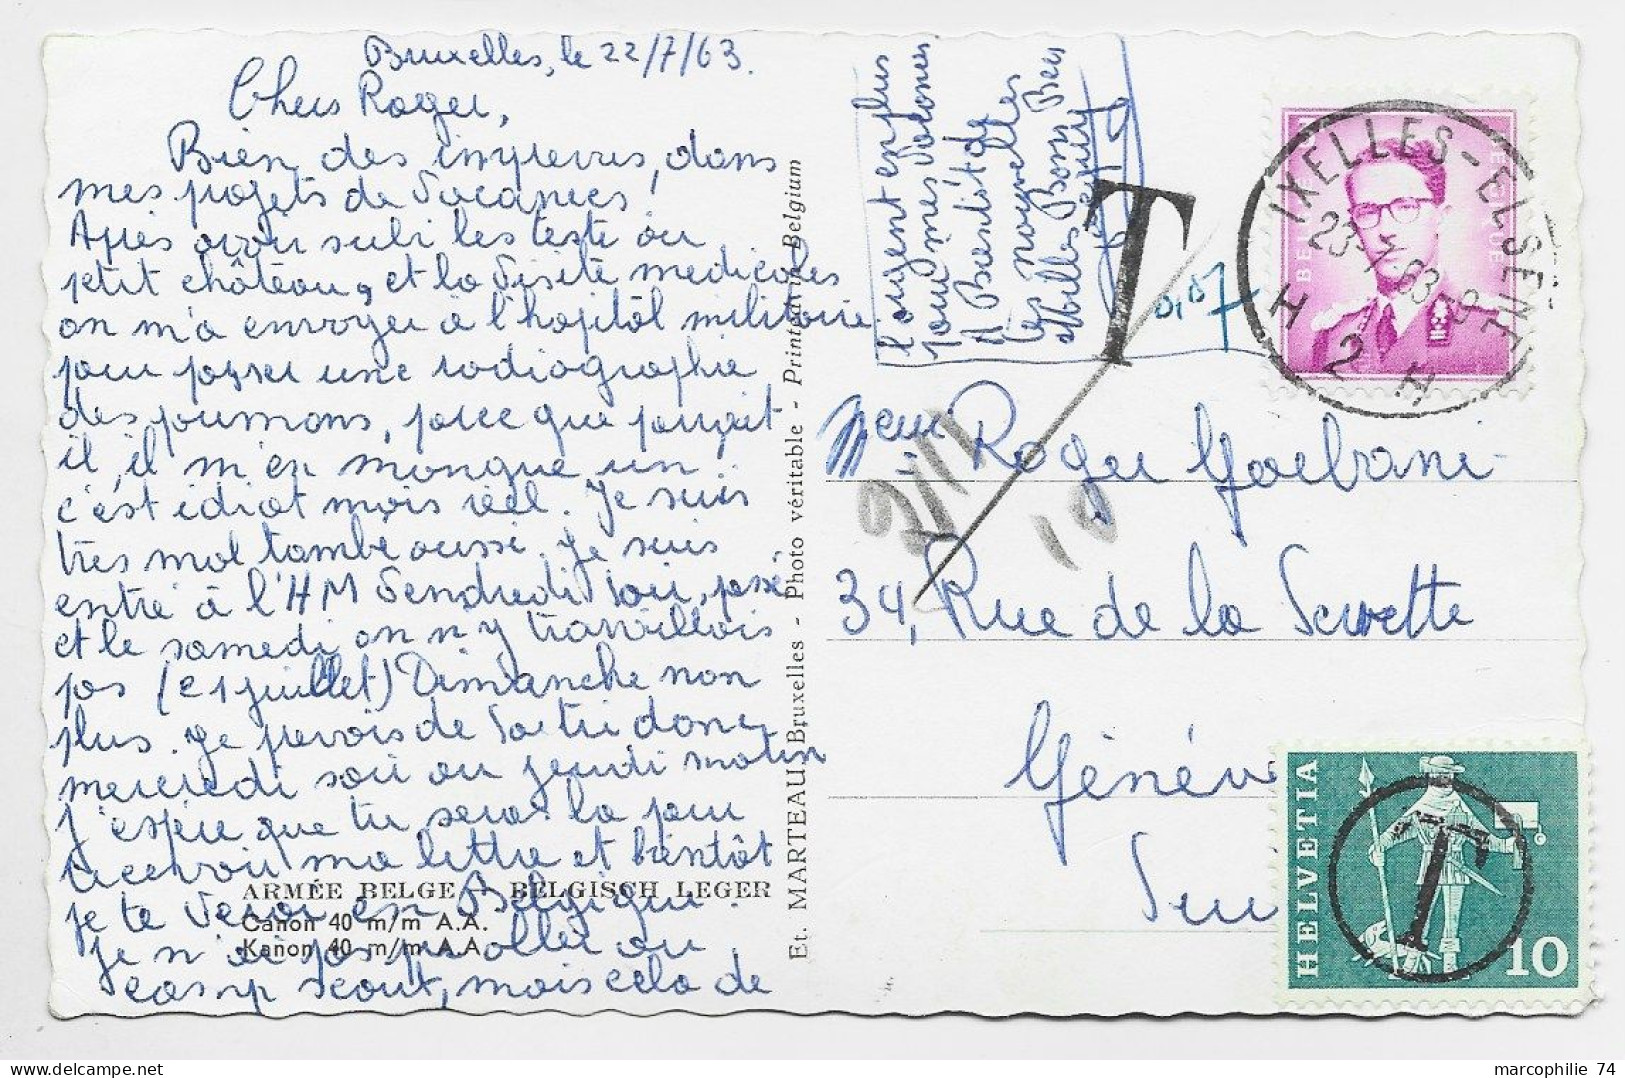 Bruxelles, le 22/7/63.
Cher Roger,
Bien des imprevus, dans
mes projets de vacances.
Après avoir subi les tests au
petit château, et la visite medicales
on m'a envoyer à l'hopitâl militaire
pour passer une radiographie
des poumons, parce que parait
il, il m'en manque un..
c'est idiot mais réel. Je suis
très mal tombé aussi. Je suis
entré à l'HM Vendredi soir,
et le samedi on n'y travaillais
pas (21 juillet) Dimanche non
plus. Je prevois de sortir donc
mercredi soir ou jeudi matin
J'espère que tu seras là pour
recevoir ma lettre et bientôt
je te verrai en Belgique.
je n'ai pas pu aller au
camp scout, mais cela de
ARMÉE BELGE - BELGISCH LEGER
Canon 40 m/m A.A.
Kanon 40 m/m A.A.
Et. MARTEAU, Bruxelles - Photo véritable - Printed in Belgium
l'argent en plus
pour mes
A Bientôt de
tes nouvelles
Milles Bons
T
0,07
IXELLES-ELSENE
23-7-63
H 2 H
BELGIE BELGIQUE
10
Roger
34, Rue de la Servette
Genève
HELVETIA
T
10
marcophilie 74